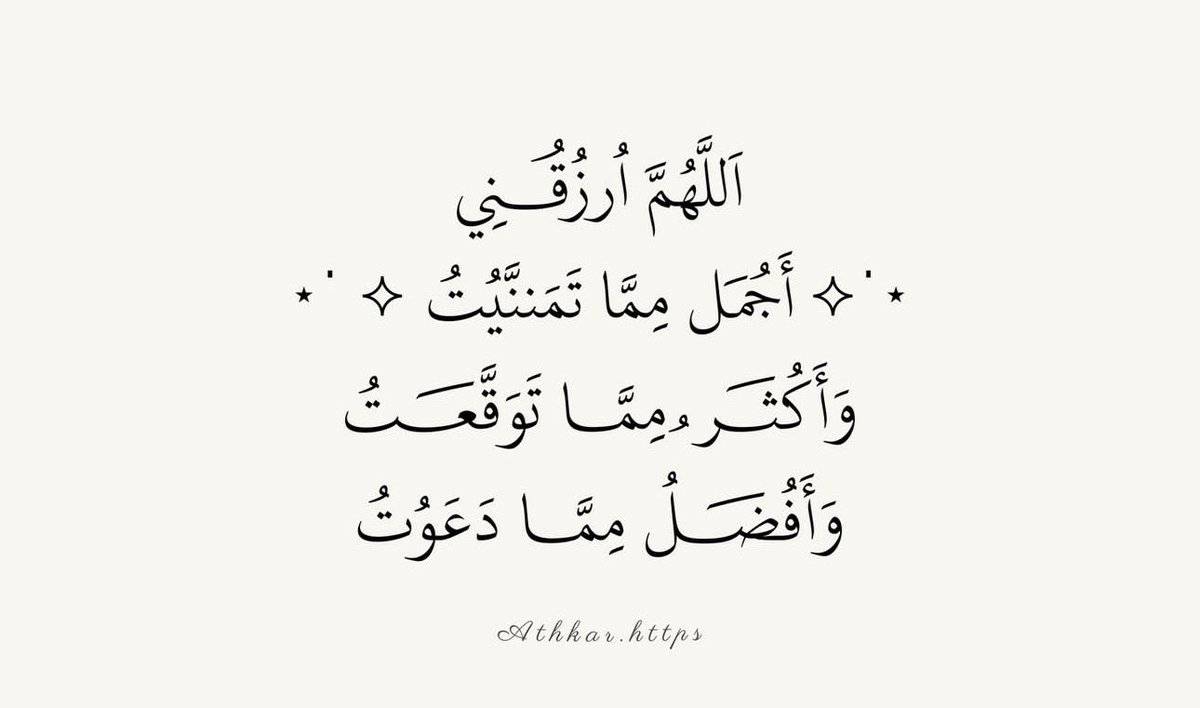 اَللَّهُمَّ اُرزُقُـــنِي
⋆˙✧ أَجُمَل مِمَّا تَمَننَّيُتُ ✧ ˙⋆
وَأَكُثَـــر ُمِمَّـــا تَوَقَّعَـــتُ
وَأَفُضَـــلُ مِمَّـــا دَعَوُتُ
Athkar.https